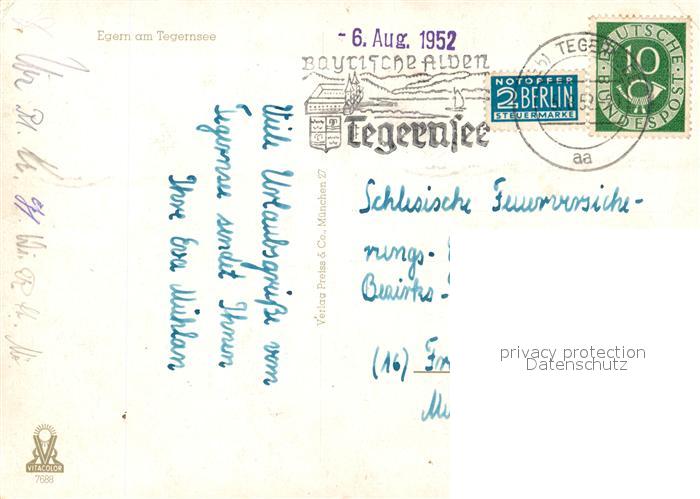 Egern am Tegernsee
- 6. Aug. 1952
Bayrische Alpen
Tegernsee
NOTOPFER
2 BERLIN
STEUERMARKE
TEGER
aa
DEUTSCHE
10
BUNDESPOST
Viele Urlaubsgrüße vom
Tegernsee sendet Ihnen
Ihre Eva Mühlan
Verlag Preiss & Co., München 27
Schlesische Feuerversiche-
rungs-
Bezirks-
(16)
privacy protection
Datenschutz
VITACOLOR
7688